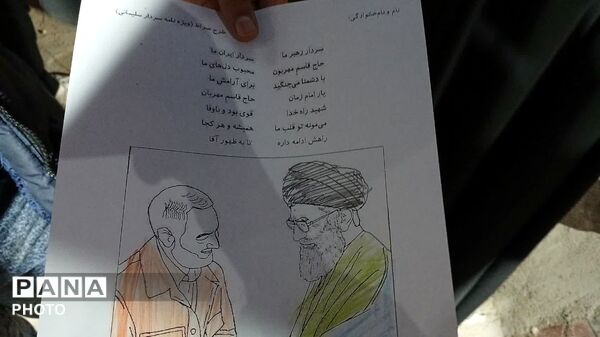 نام و نام‌خانوادگی:
طرح سرانا (ویژه نامه سردار سلیمانی)
سردار رهبر ما
سردار ایران ما
حاج قاسم مهربون
محبوب دل‌های ما
با دشمنا می‌جنگید
برای آرامش ما
یار امام زمان
حاج قاسم مهربان
شهید راه خدا
قوی بود و باوفا
می‌مونه تو قلب ما
همیشه و هر کجا
راهش ادامه داره
تا به ظهور آقا
PANA
PHOTO